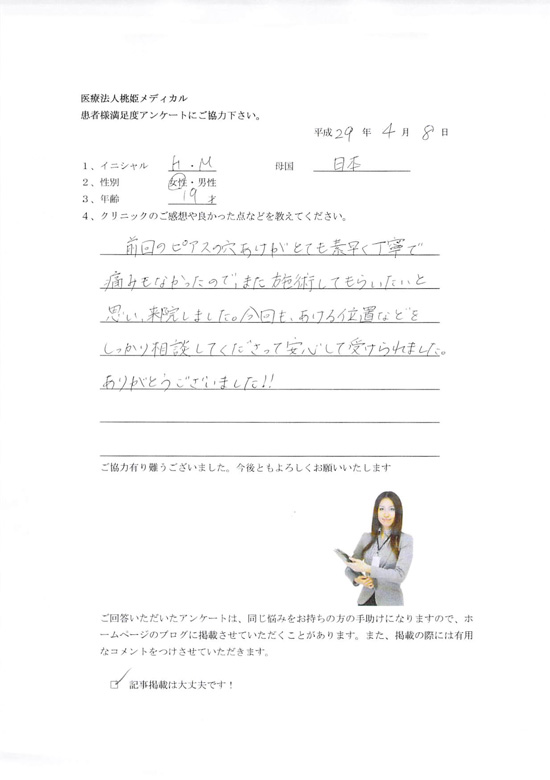 医療法人桃姫メディカル
患者様満足度アンケートにご協力下さい。
平成29年 4月 8日
1、イニシャル H.M 母国 日本
2、性別 女性・男性
3、年齢 19才
4、クリニックのご感想や良かった点などを教えてください。
前回のピアスの穴あけがとても素早く丁寧で
痛みもなかったので、また施術してもらいたいと
思い、来院しました。今回も、あける位置などを
しっかり相談してくださって安心して受けられました。
ありがとうございました!!
ご協力有り難うございました。今後ともよろしくお願いいたします
ご回答いただいたアンケートは、同じ悩みをお持ちの方の手助けになりますので、ホ
ームページのブログに掲載させていただくことがあります。また、掲載の際には有用
なコメントをつけさせていただきます。
☑ 記事掲載は大丈夫です!